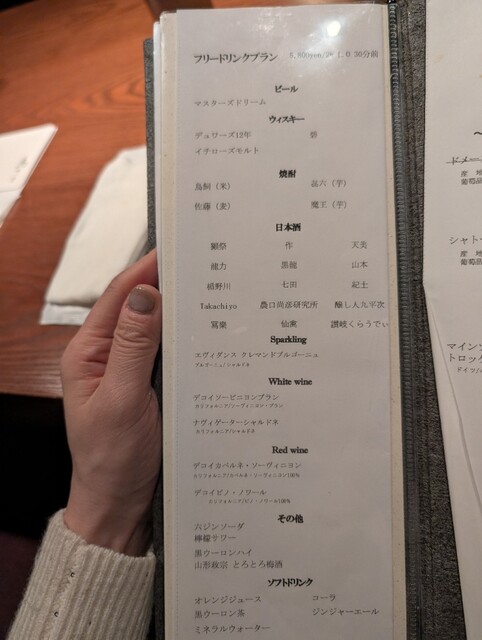 フリードリンクプラン
30分前
ビール
マスターズドリーム
ウィスキー
デュワーズ12年 碧
イチローズモルト
焼酎
鳥飼（米） 富六（芋）
佐藤（麦） 魔王（芋）
日本酒
獺祭 作 天美
龍力 黒龍 山本
楯野川 七田 紀土
Takachiyo 農口尚彦研究所 醸し人九平次
寫樂 仙禽 讃岐くらうでぃ
Sparkling
エヴィダンス クレマンドブルゴーニュ
ブルゴーニュ/シャルドネ
White wine
デコイソービニヨンブラン
カリフォルニア/ソーヴィニヨン・ブラン
ナヴィゲーターシャルドネ
カリフォルニア/シャルドネ
Red wine
デコイカベルネ・ソーヴィニヨン
カリフォルニア/カベルネ・ソーヴィニヨン100%
デコイピノ・ノワール
カリフォルニア/ピノ・ノワール100%
その他
六ジンソーダ
檸檬サワー
黒ウーロンハイ
山形政宗 とろとろ梅酒
ソフトドリンク
オレンジジュース コーラ
黒ウーロン茶 ジンジャーエール
ミネラルウォーター
ドメー
産 地
葡萄品
シャトー
産 地
葡萄品
マインツ
トロッケ
ドイツ/